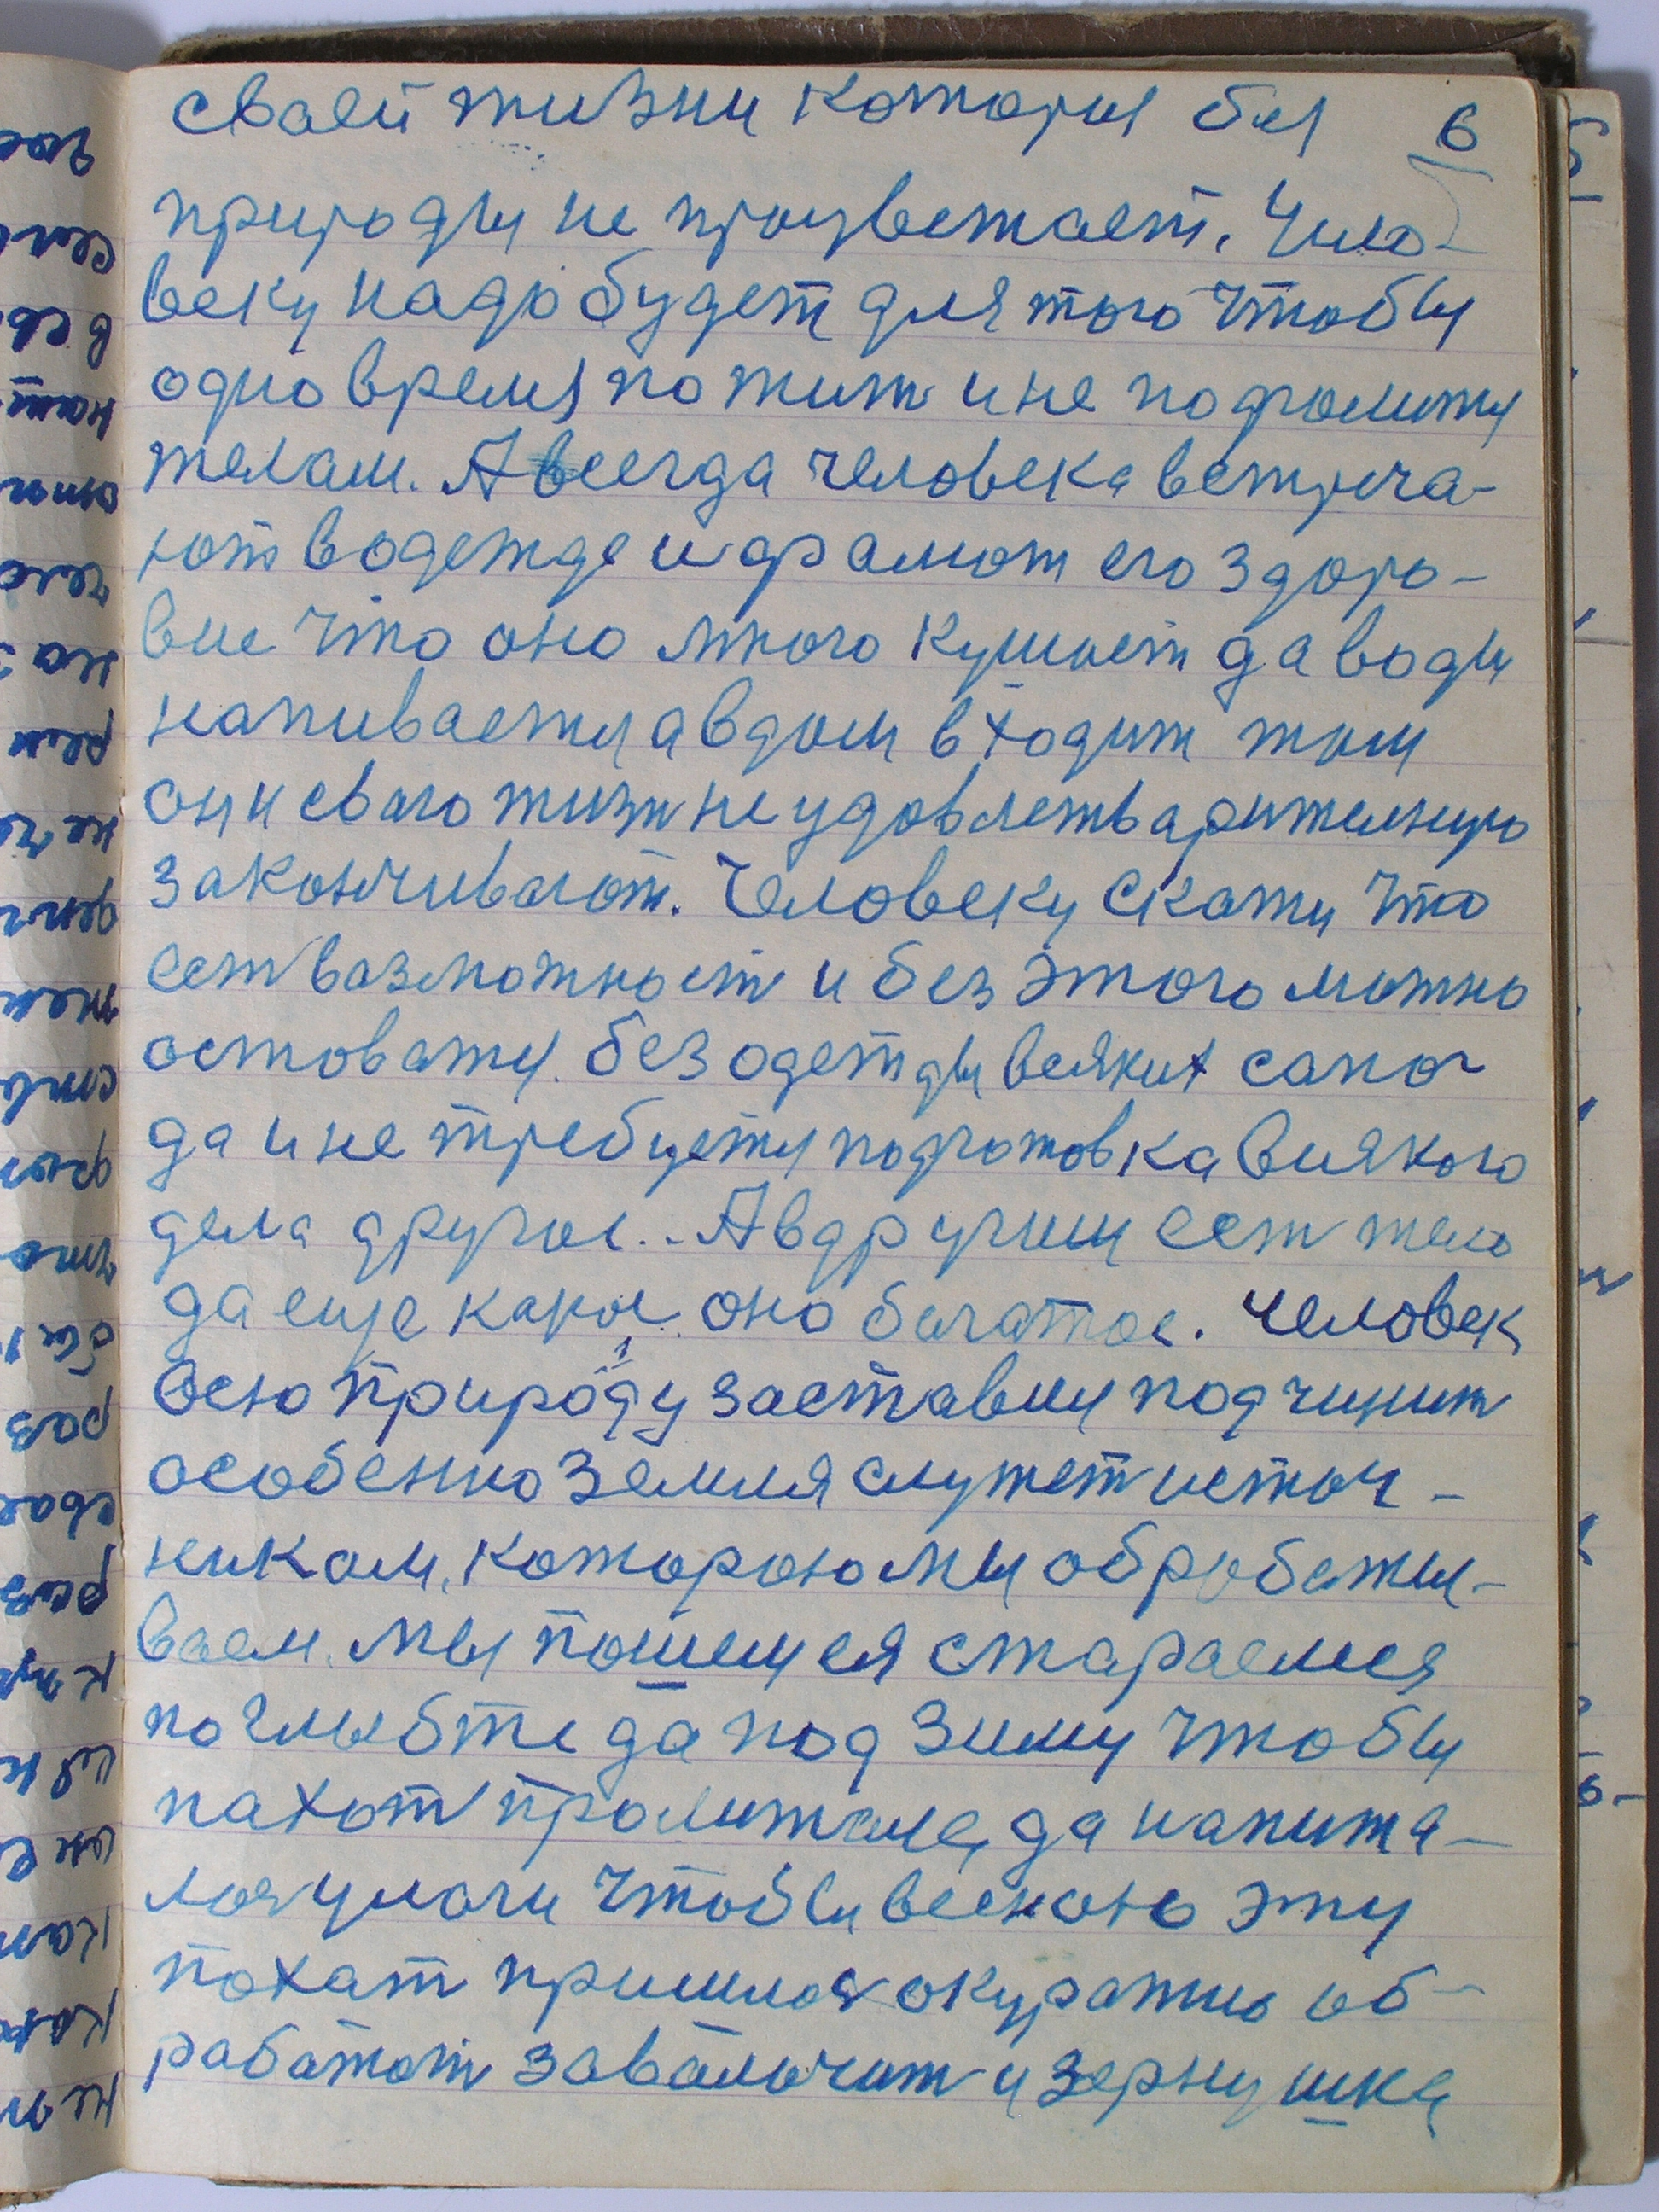 сваей жизни которыя бы 6
природы не процветает. Чило-
веку надо будет для того чтобы
одно время пожит и не подромитц
телам. А всегда человека встреча-
ют в одежде и фрамот его здоро-
вие что оно много кушает да воды
напивается а в дом входит тым
они сваго жизн не удовлетварителную
закончивают. Человеку скажи что
ест вазможност и без этого можно
остоватц. без одежды всяких сапог
да и не требуетц подготовка всиякого
дела другое.. А в другим ест тело
да еще какое оно багатое. Человек
всю природу заставил подчинит
особенно земля служет источ-
никам, которою мы обработы-
ваем. мы пошем ея стараемся
поглыбже да под зиму чтобы
пахот промитале, да напита-
лая улаги чтобы весною эту
похат пришлоя окуратно об-
работат завалочит и зернушке